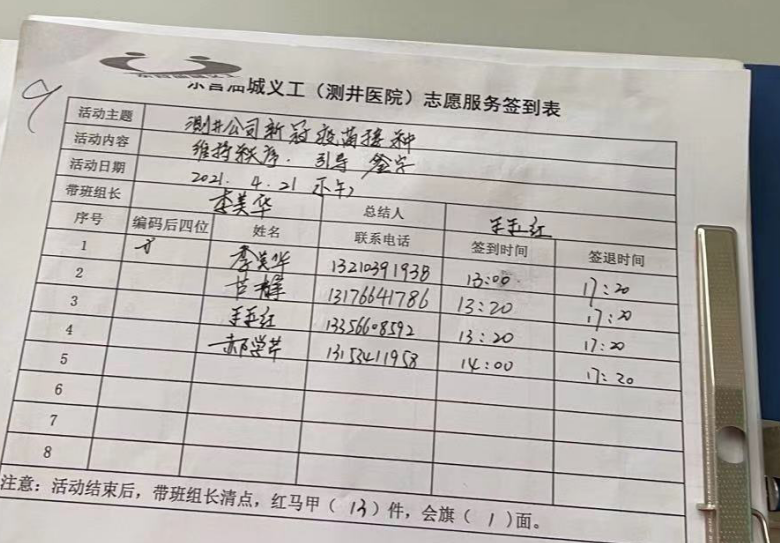 东营油城义工（测井医院）志愿服务签到表
活动主题 测井公司新冠疫苗接种
活动内容 维持秩序. 引导 签字
活动日期 2021. 4. 21 下午
带班组长 李美华 总结人 王玉红
序号 编码后四位 姓名 联系电话 签到时间 签退时间
1 李美华 13210391938 13:00 17:20
2 13176641786 13:20 17:20
3 王玉红 13356608592 13:20 17:20
4 郝学芹 13153411958 14:00 17:20
5
6
7
8
注意：活动结束后，带班组长清点，红马甲（13）件，会旗（1）面。